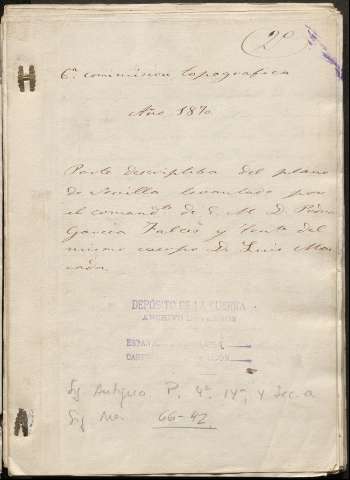 (2º)
6ª commision topografica
Año 1870
Parte descriptiba del plano
de Sevilla levantado por
el comandte de E. M. D. Pedro
García y Tente del
mismo cuerpo D. Luis
DEPÓSITO DE LA GUERRA
ARCHIVO DE PLANOS
ESPAÑA
Sig. Antiguo P. 4ª 14ª, y Sec. a
Sig. Na. 66-42